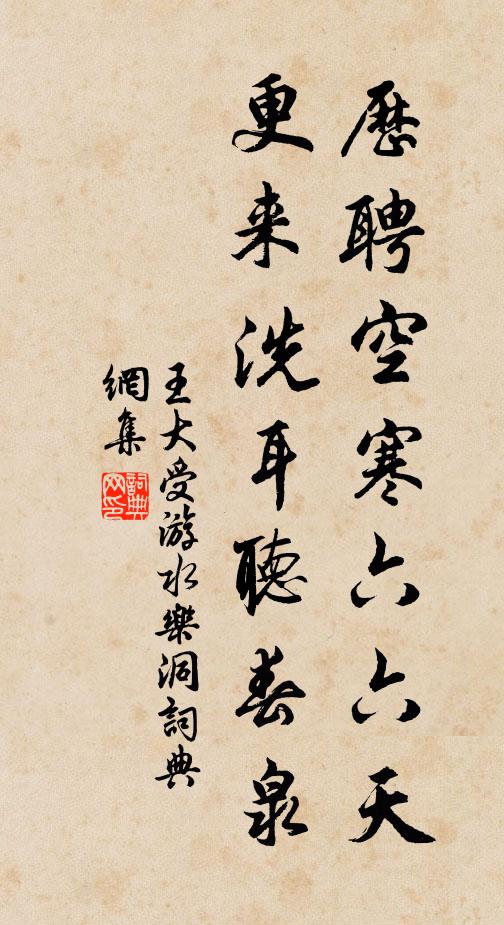 歷聘空寒六六天
更来洗耳聽春泉
王大受游水樂洞詞典
網集
詞典
网印